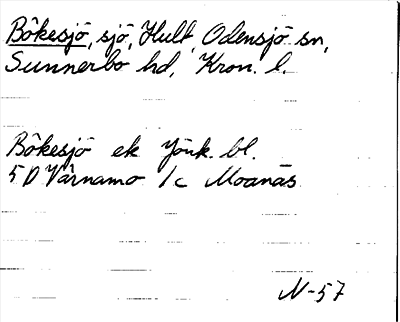 Bökesjö, sjö, Hult, Odensjö sn,
Sunnerbo hd, Kron. l.
Bökesjö ek Jönk. bl.
5 D Värnamo 1c Moanäs
N-57